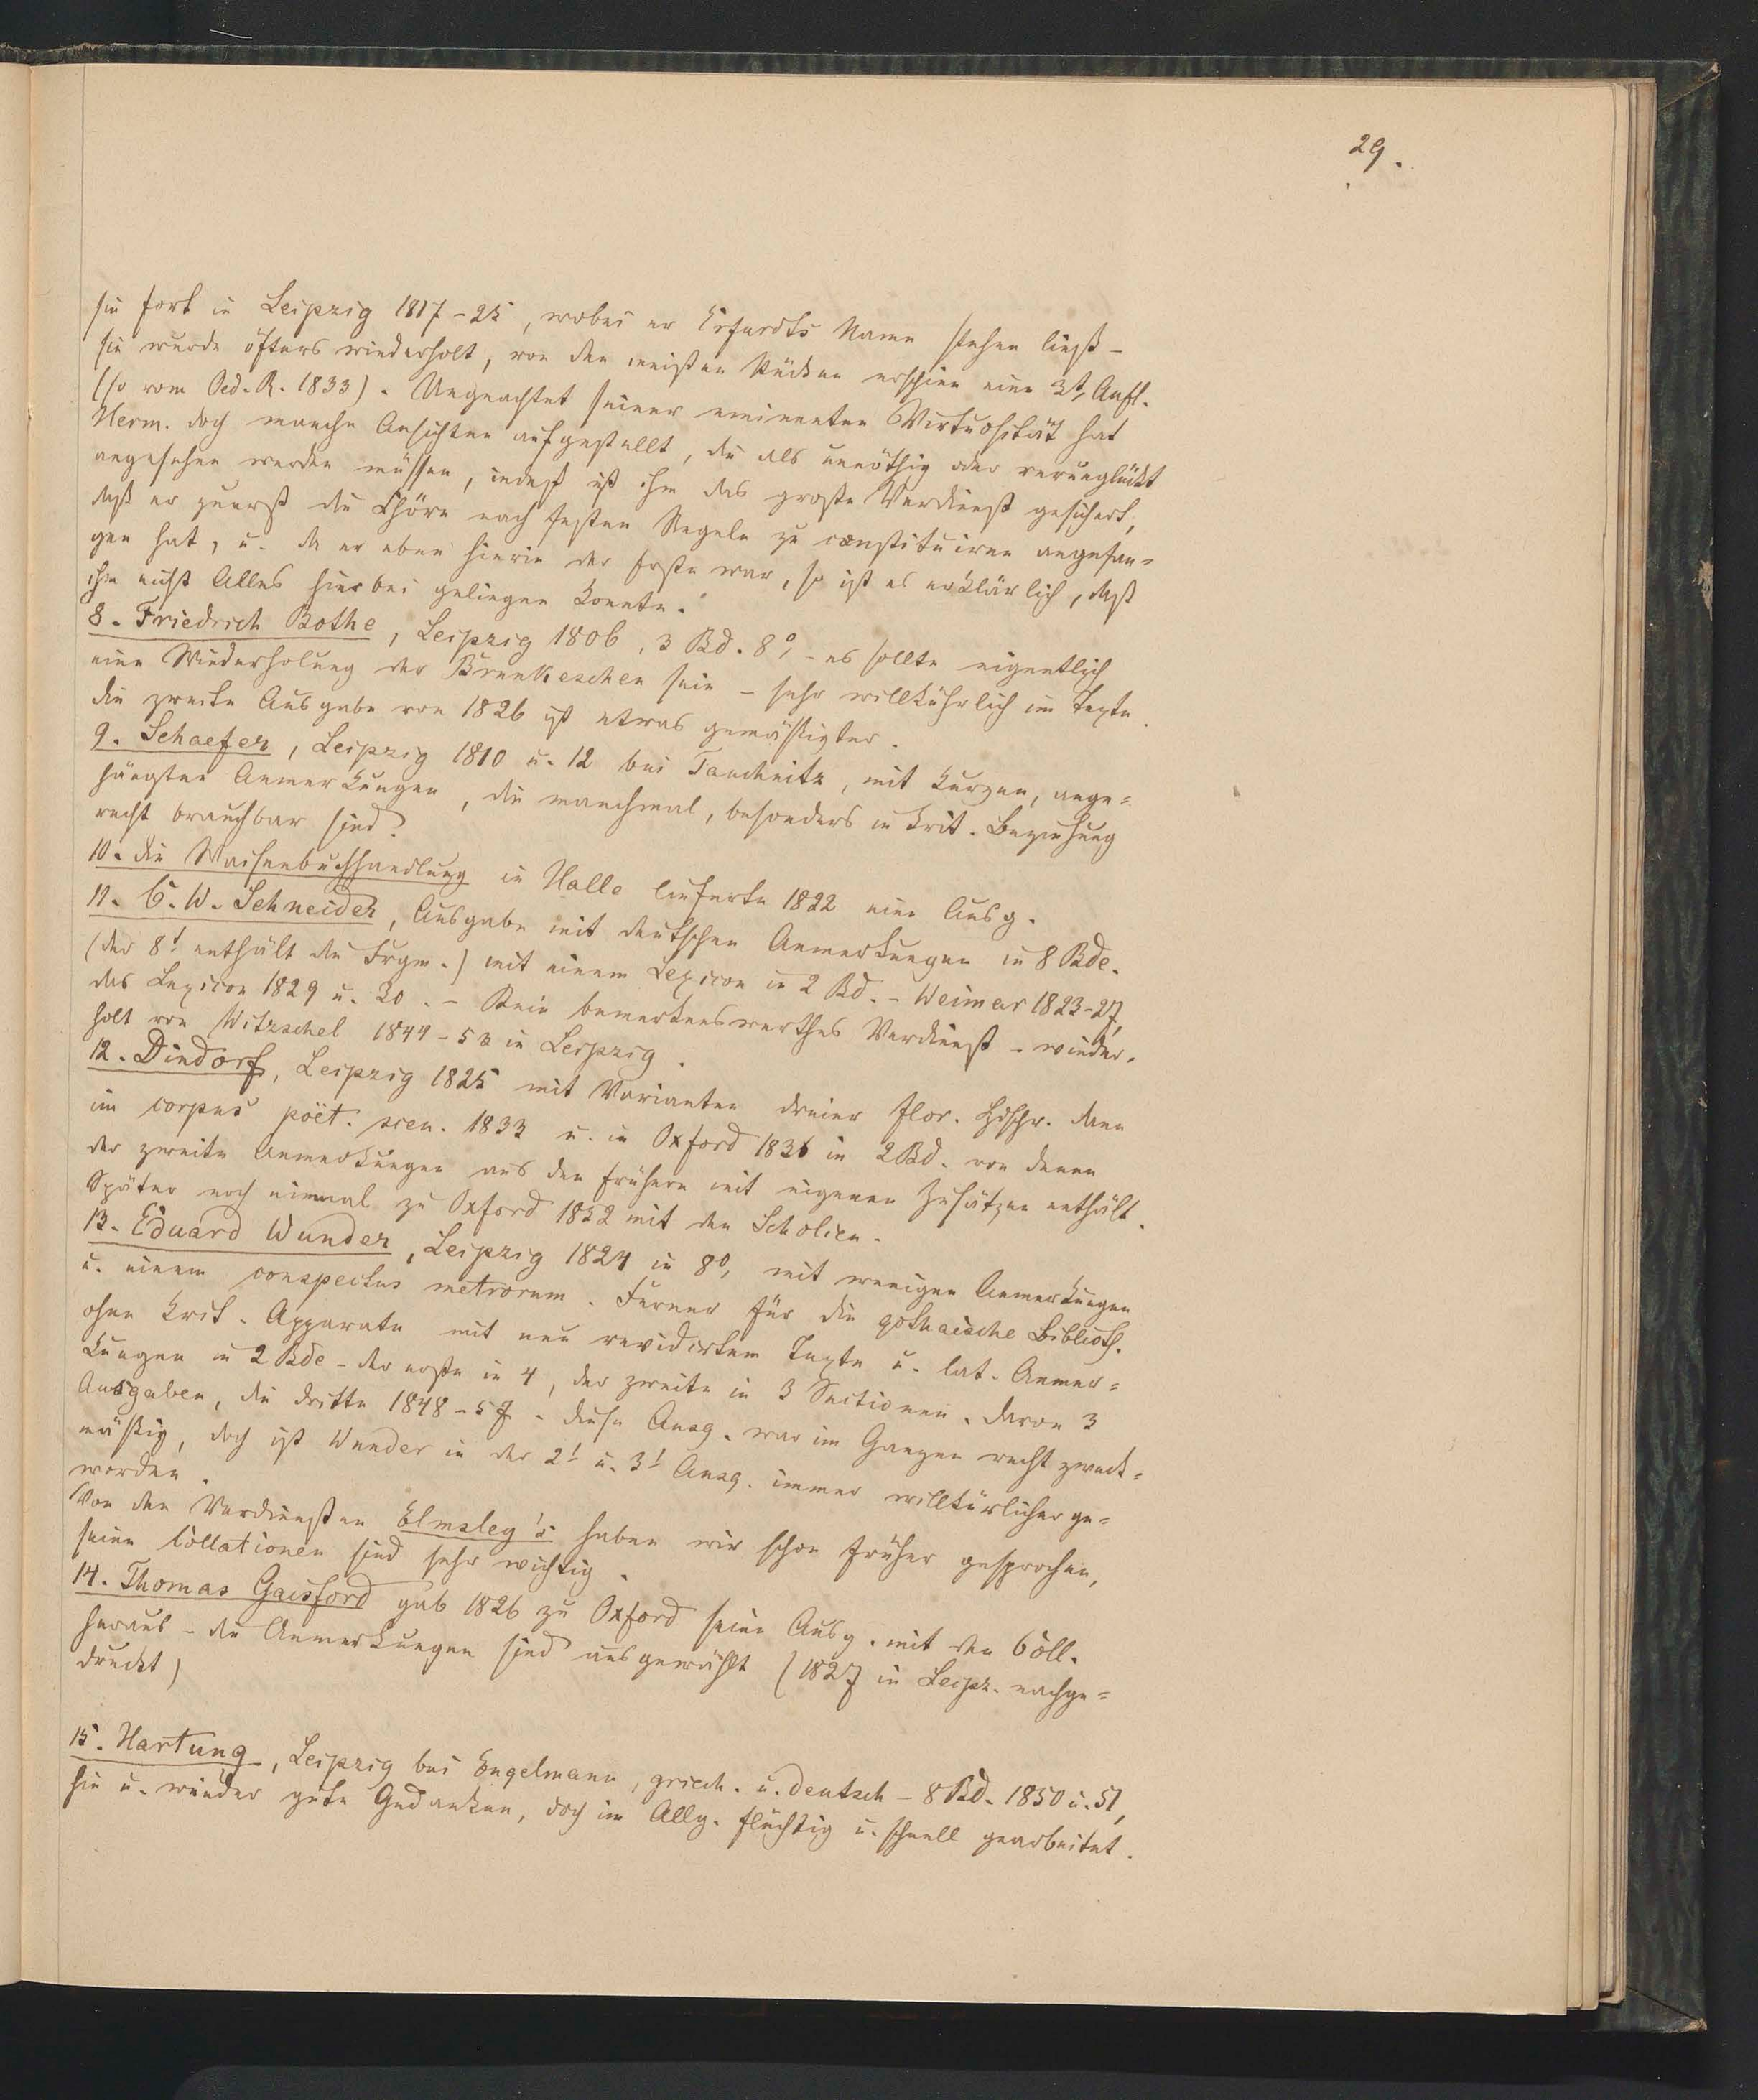 29.
sie fort in Leipzig 1817-25, wobei er Erfurdts Name stehen ließ -
sie wurde öfters wiederholt, von den meisten Stücken erschien eine 3te Aufl.
(so vom Oed. R. 1833). Ungeachtet seiner eminenten Virtuosität hat
Herm. doch manche Ansichten aufgestellt, die als unnöthig oder verunglückt
angesehen werden müssen, indeß ist ihm das große Verdienst gesichert,
daß er zuerst die Chöre nach festen Regeln zu constituiren angefan=
gen hat, u. da er eben hierin der Erste war, so ist es erklärlich, daß
ihm nicht Alles hierbei gelingen konnte.
8. Friedrich Bothe, Leipzig 1806, 3 Bd. 8°, - es sollte eigentlich
eine Wiederholung der Brunkeschen sein - sehr willkührlich im Texte.
die zweite Ausgabe von 1826 ist etwas gemäßigter.
9. Schaefer, Leipzig 1810 u. 12 bei Tauchnitz, mit kurzen, ange=
hängten Anmerkungen, die manchmal, besonders in krit. Beziehung
recht brauchbar sind.
10. die Waisenbuchhandlung in Halle lieferte 1822 eine Ausg.
11. G. W. Schneider, Ausgabe mit deutschen Anmerkungen in 8 Bde.
(der 8t. enthält die Frgm.) mit einem Lexicon in 2 Bd. - Weimar 1823-27,
das Lexicon 1829 u. 30. - Kein bemerkenswerthes Verdienst - wieder=
holt von Witzschel 1844-53 in Leipzig.
12. Dindorf, Leipzig 1825 mit Varianten dreier flor. Hdschr. dann
im corpus poët. scen. 1833 u. in Oxford 1836 in 2 Bd. von denen
der zweite Anmerkungen aus den frühern mit eigenen Zusätzen enthält.
Später noch einmal zu Oxford 1852 mit den Scholien.
13. Eduard Wunder, Leipzig 1824 in 8°, mit wenigen Anmerkungen
u. einem conspectus metrorum. Ferner für die gothaische Biblioth.
ohne krit. Apparate mit neu revidirtem Texte u. lat. Anmer=
kungen in 2 Bde - der erste in 4, der zweite in 3 Sectionen. davon 3
Ausgaben, die dritte 1848-57. diese Ausg. war im Ganzen recht zweck=
mäßig, doch ist Wunder in der 2t. u. 3t. Ausg. immer willkürlicher ge=
worden.
Von den Verdiensten Elmsley's haben wir schon früher gesprochen,
seine Collationen sind sehr wichtig.
14. Thomas Gaisford gab 1826 zu Oxford seine Ausg. mit den Coll.
heraus - die Anmerkungen sind ausgewählt (1827 in Leipz. nachge=
druckt)
15. Hartung, Leipzig bei Engelmann, griech. u. deutsch - 8 Bd. 1850 u. 51,
hie u. wieder gute Gedanken, doch im Allg. flüchtig u. schnell gearbeitet.